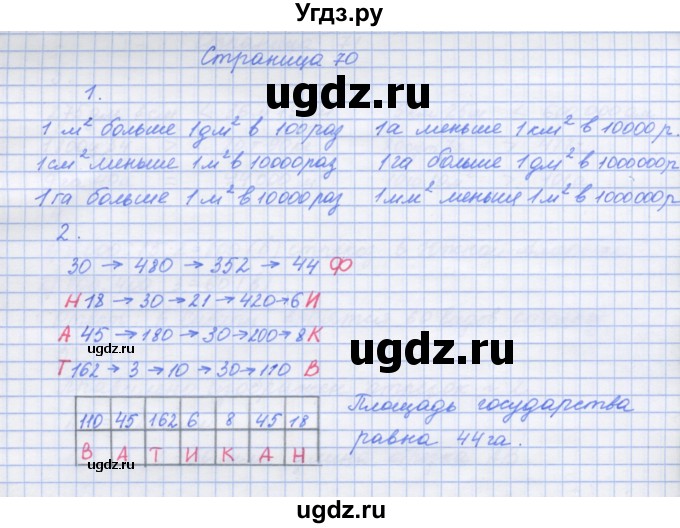 Угдз.ру
ugdz.ru
Страница 70
1.
ugdz.ru
1 м² больше 1 дм² в 100 раз 1а меньше 1 км² в 10000 р.
1 см² меньше 1 м² в 10000 раз 1 га больше 1 дм² в 1000000 р
ugdz.ru
1 га больше 1 м² в 10000 раз 1 мм² меньше 1 м² в 1000000 р
2.
30 → 480 → 352 → 44 Ф
Н 18 → 30 → 21 → 420 → 6 И
А 45 → 180 → 30 → 200 → 8 К
ugdz.ru
ugdz.ru
Т 162 → 3 → 10 → 30 → 110 В
110 45 162 6 8 45 18
В А Т И К А Н
Площадь государства
равна 44 га.
ugdz.ru
ugdz.ru
ugdz.ru